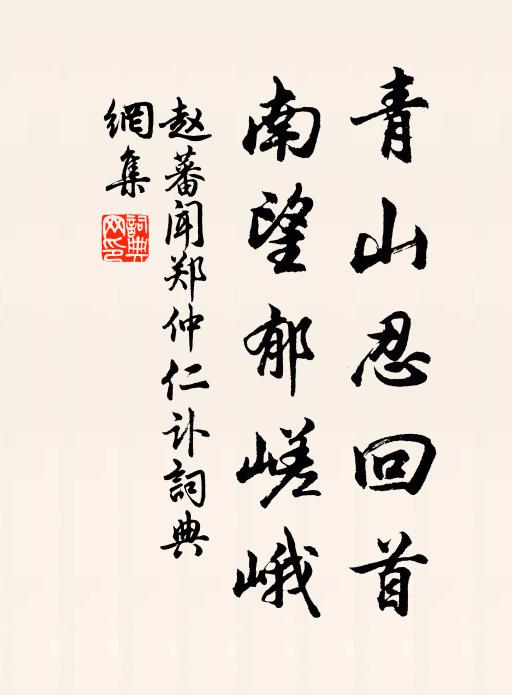 青山忍回首
南望郁嵯峨
赵蕃闻郑仲仁讣詞典
網集
詞典
网印